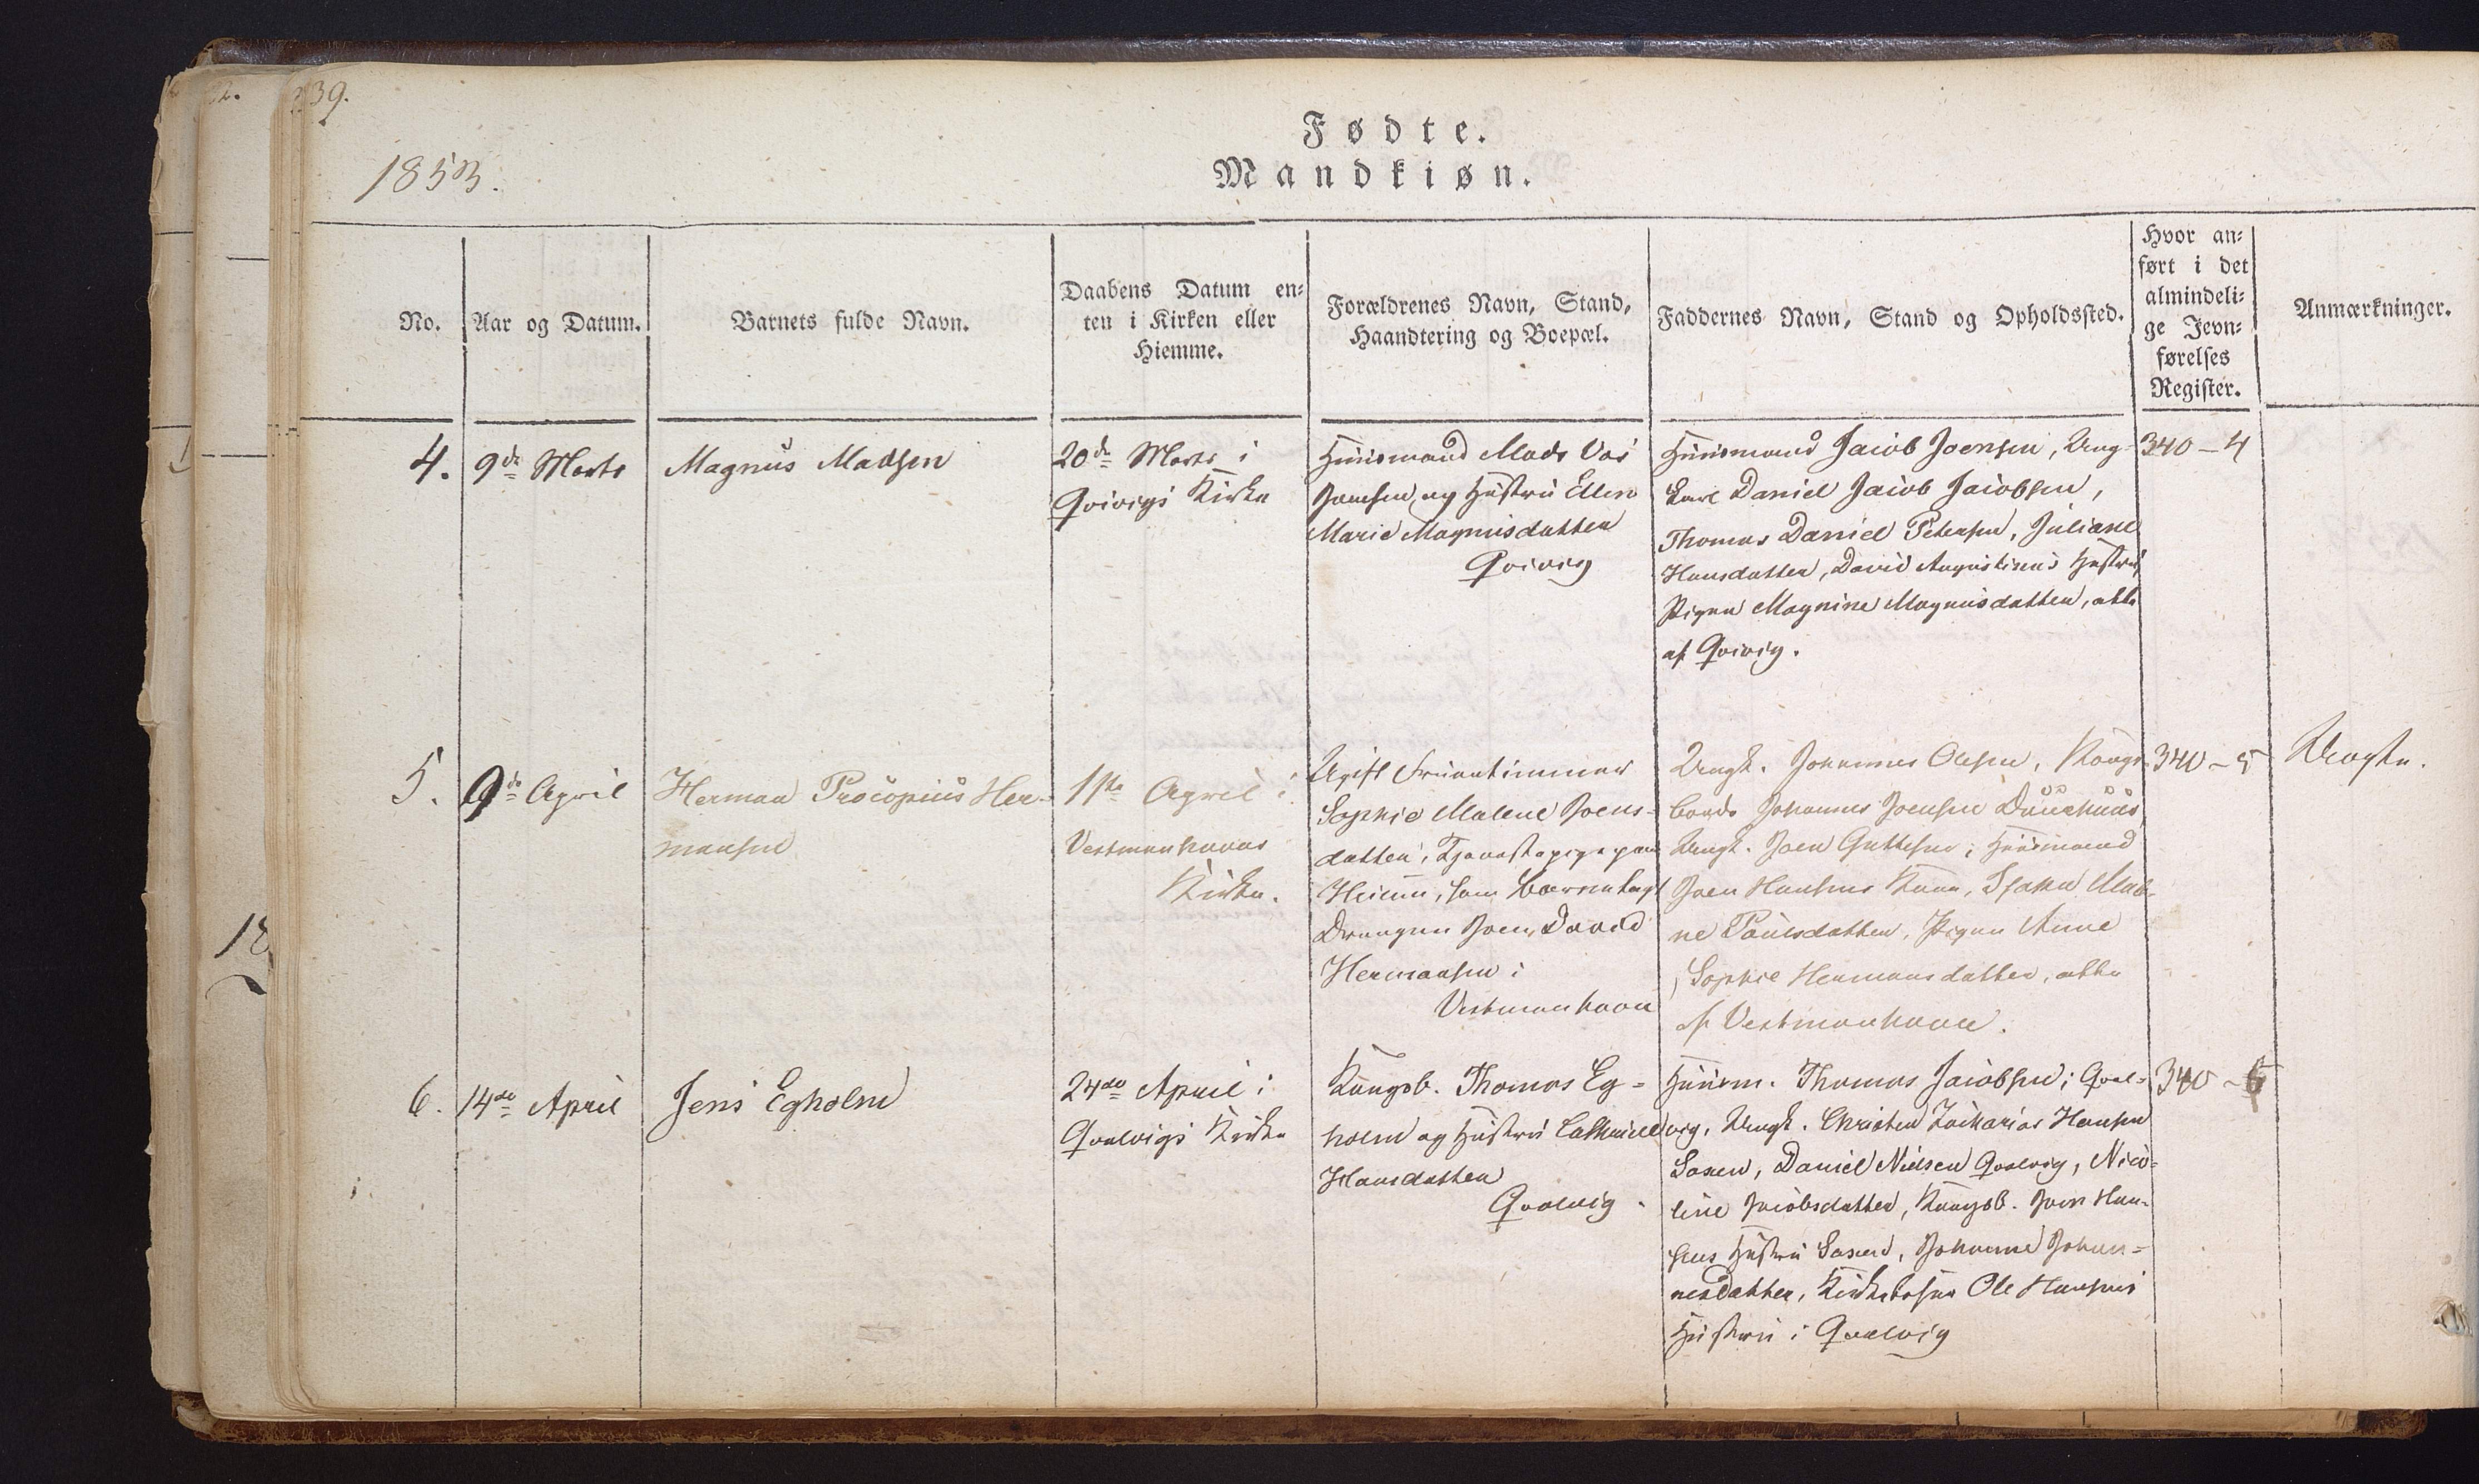 39.
Fødte.
Mandkiøn.
1853.
No.
Aar og Datum.
Barnets fulde Navn.
Daabens Datum en-
ten i Kirken eller
Hiemme.
Forældrenes Navn, Stand,
Haandtering og Boepæl.
Faddernes Navn, Stand og Opholdssted.
Hvor an-
ført i det
almindeli-
ge Jevn-
førelses
Register.
Anmærkninger.
4.
9de Marts
Magnus Madsen
20de Marts i
Qvivigs Kirke
Huusmand Mads
Joensen og Hustru Ellen
Marie Magnusdatter
Qvivig
Huusmand Jacob Joensen, Ung-
karl Daniel Jacob Jacobsen,
Thomas Daniel Petersen, Juliane
Hansdatter, David Augustinus Hustru
Pigen Magnine Magnusdatter, alle
af Qvivig.
340 - 4
5.
9de April
Herman Procopius Her-
mansen
April i
Vestmanhavns
Kirke.
Ugift Fruentimmer
Sophie Malene Joens-
datter, Tjenestepige
som
Drengen Joen David
Hermansen i
Vestmanhavn
Ungk. Johannes Olesen, Kongs-
bonde Johannes Joensen
Ungk. Joen Guttesen, Huusmand
Joen Hansens Kone, Male-
ne Poulsdatter, Pigen Anne
Sophie Hermansdatter, alle
af Vestmanhavn.
340 - 5
Uægte.
6.
14de April
Jens Egholm
24de April i
Qvalvigs Kirke
Kongsb. Thomas Eg-
holm og Hustru Cathrine
Hansdatter
Qvalvig.
Huusm. Thomas Jacobsen i Qval-
vig, Ungk. Christen Zacharias Hansen
Saxen, Daniel Nielsen Qvalvig, Nico-
line Jacobsdatter, Kongsb. Joen Han-
sens Hustru Saxen, Johanne Johan-
nesdatter, Ole Hansens
Hustru i Qvalvig
340 - 6
18